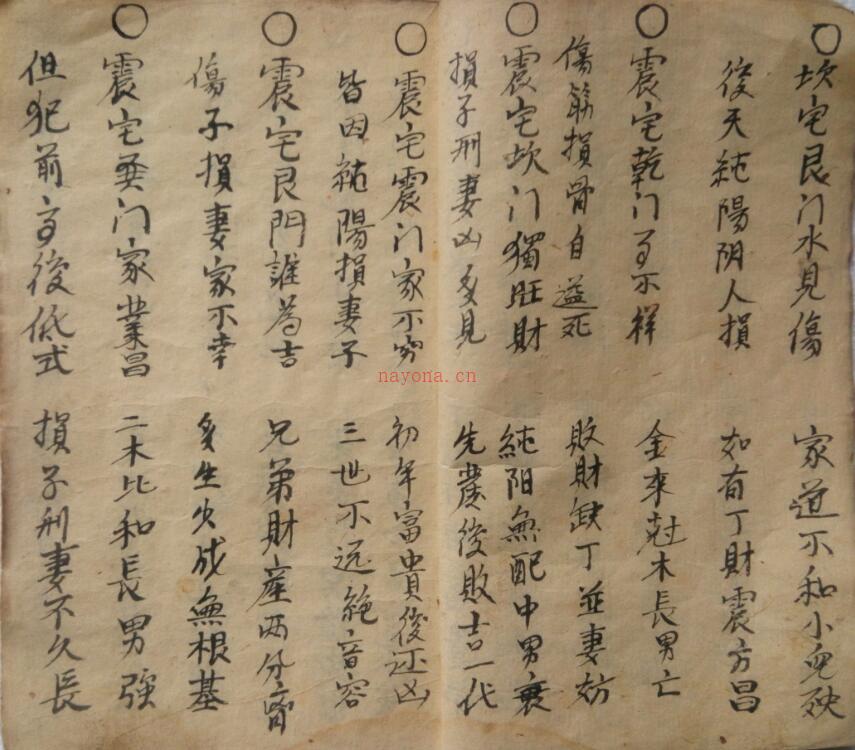 ○坎宅艮门水見傷 家道不和小兒殃
後天純陽阴人損 如有丁財震方昌
○震宅乾门不祥 金来尅木長男亡
傷筋損骨自溢死 敗財缺丁並妻妨
○震宅坎门獨旺財 純阳無配中男衰
損子刑妻凶多見 先發後敗吉一代
○震宅震门家不穷 初年富貴後还凶
皆因純陽損妻子 三世不远絶音容
○震宅艮門誰為吉 兄弟財産两分
傷子損妻家不幸 多生少成無根基
○震宅巽门家業昌 二木比和長男強
但犯前高後低式 損子刑妻不久長
nayona.cn